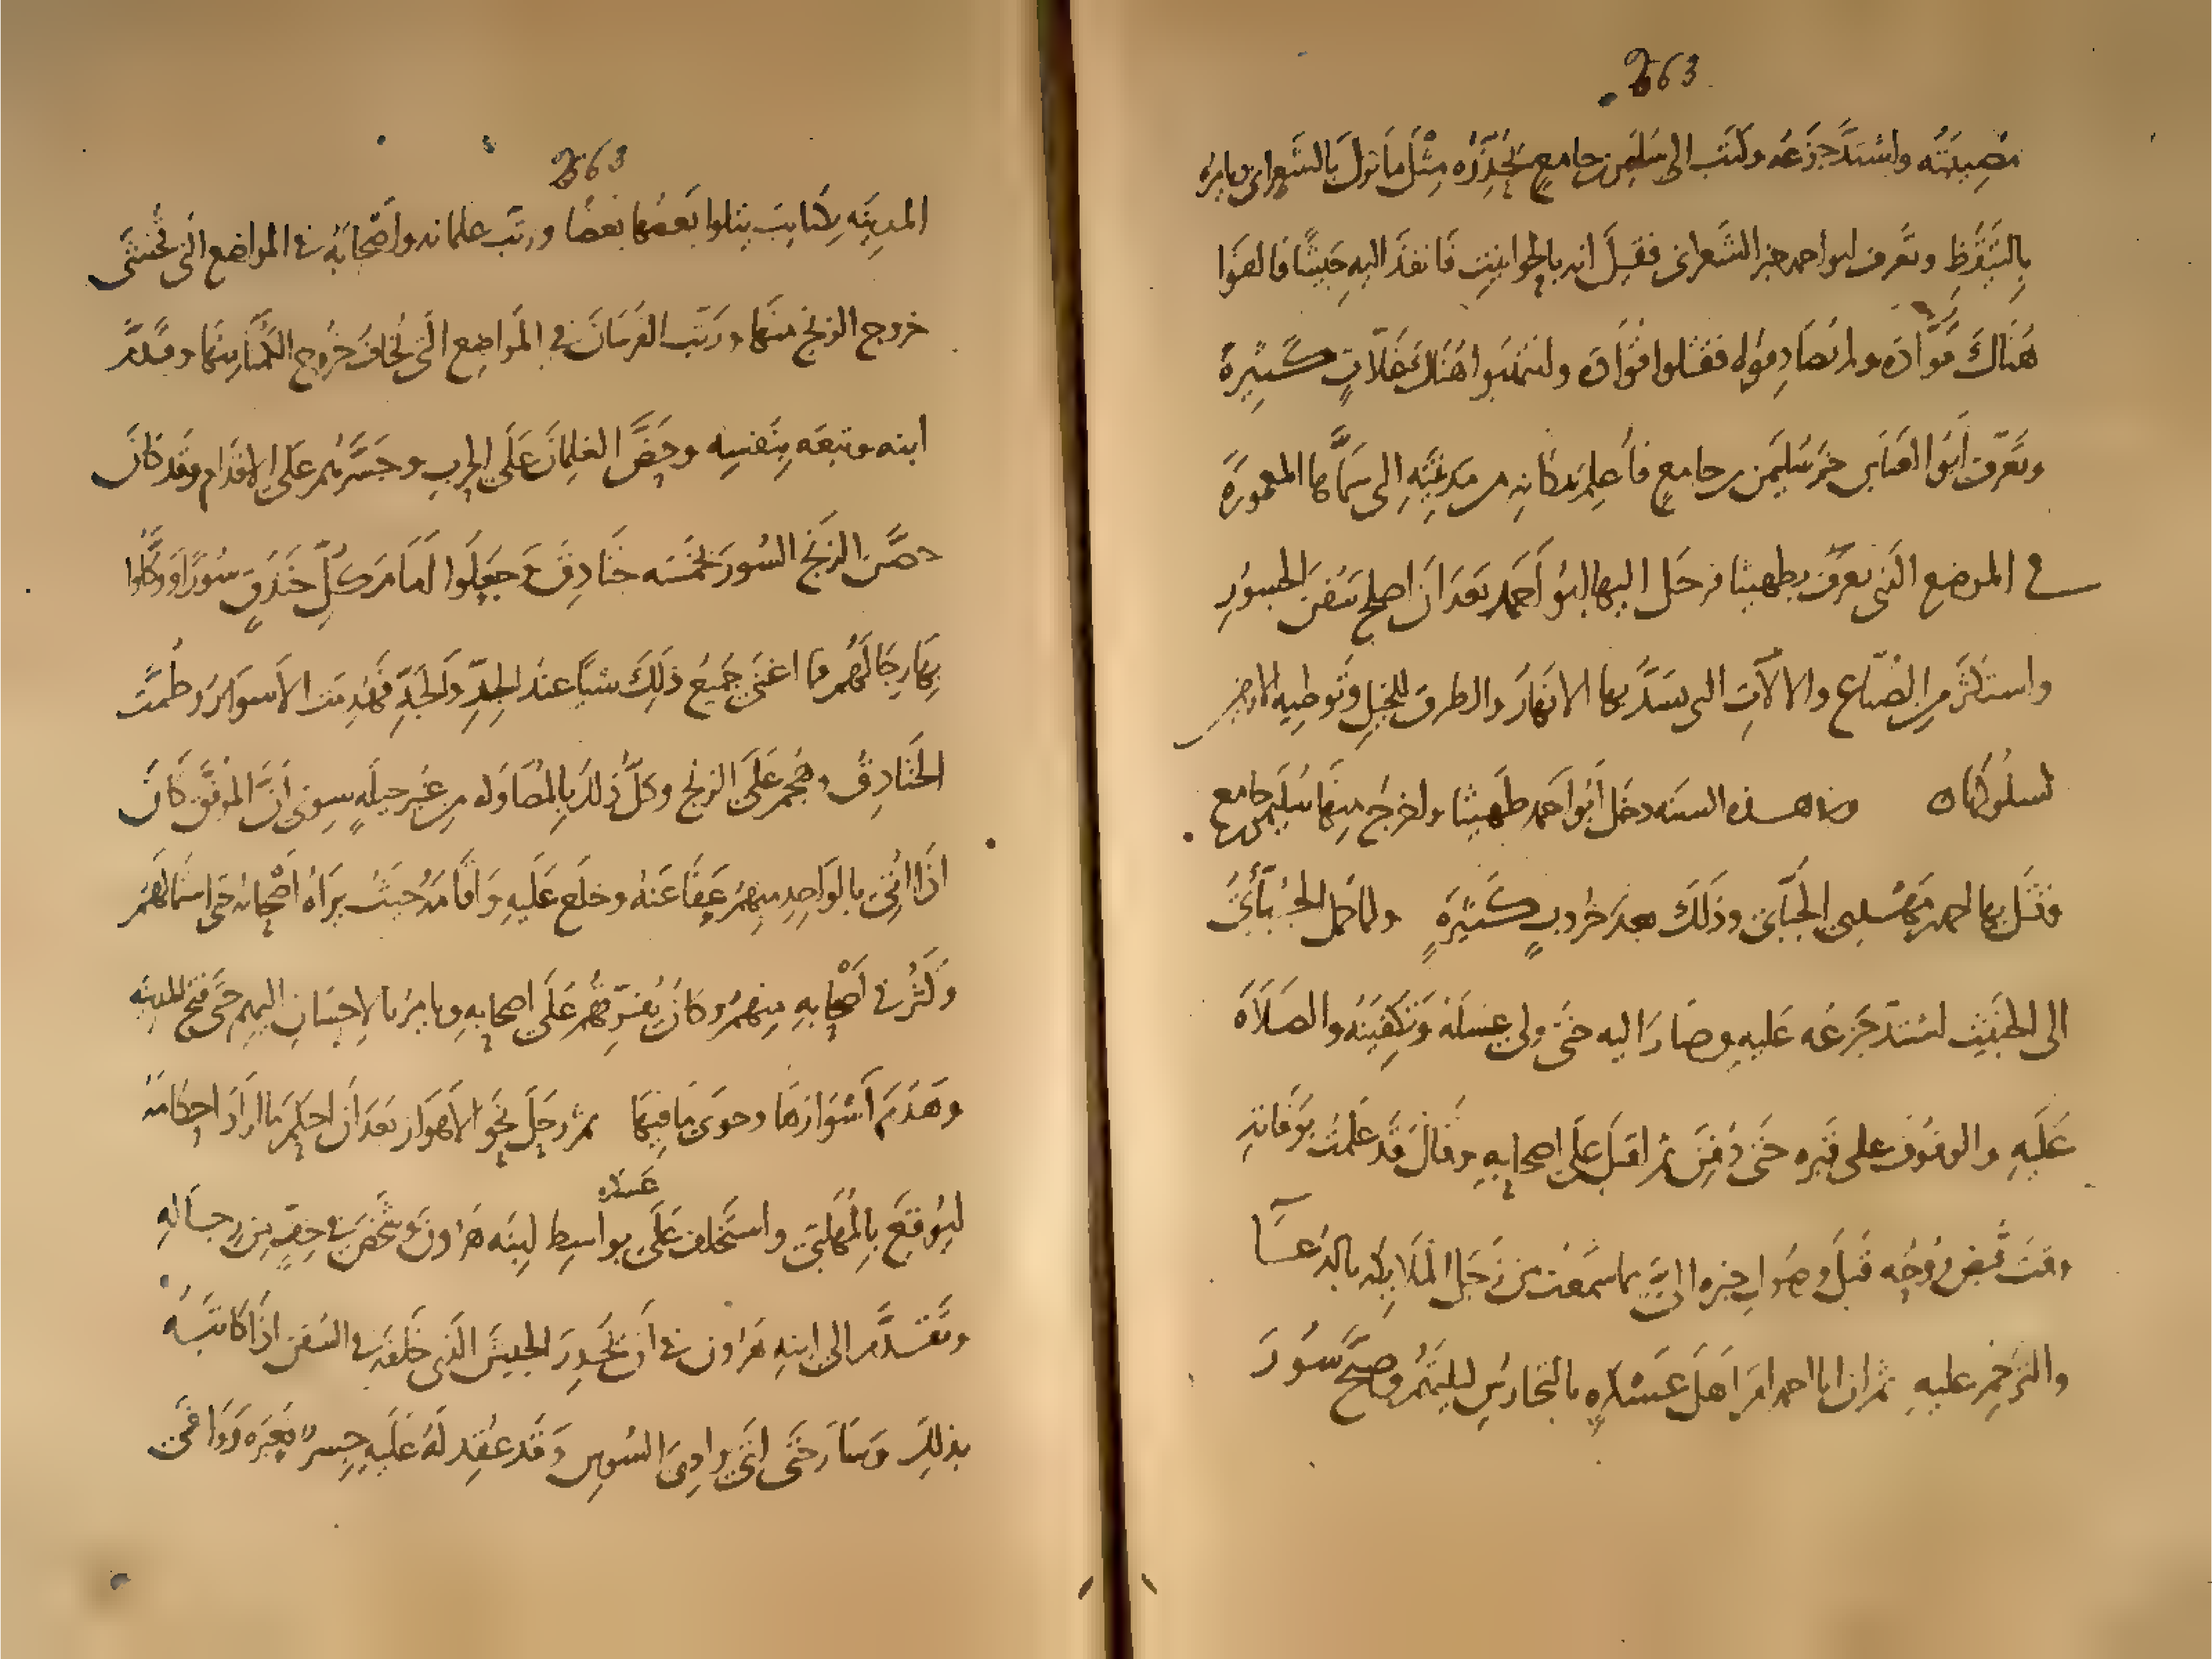 263
مصيبته واشتد جزعه وكتب الى سليمن بن جامع يحذره مثل ما نزل بالشعرانى ويامره
بالتيقظ وتعرف ابو احمد خبر الشعرانى فقيل انه بالحوانيت فانفذ اليه جيشا فالفوا
هناك قواده ولم يصادفوه فقتلوا قواده وانتهبوا هناك غلات كثيرة
وتعرف ابو العباس خبر سليمن بن جامع فاعلم بمكانه من مدينته التى سماها المنصورة
فى الموضع الذى يعرف بطهيثا فرحل اليها ابو احمد بعد ان اصلح سفن الجسور
واستكثر من الصناع والالات التى يسد بها الانهار والطرق للخيل وتوطيه الارض
لسلوكها ٥ وفى هذه السنه دخل ابو احمد طهيثا واخرج منها سليمن بن جامع
وقتل بها احمد بن مهدى الجبائى وذلك بعد حروب كثيرة ولما حمل الجبائى
الى الخبيث اشتد جزعه عليه وصار اليه حتى ولى غسله وتكفينه والصلاة
عليه والوقوف على قبره حتى دفن ثم اقبل على اصحابه وقال قد علمت بوفاته
وقت قبض روحه قبل وصول خبره الى بما سمعت من زجل الملايكه بالدعا
والترحم عليه ثم ان ابا احمد امر اهل عسكره بالتحارس ليلتهم وصبح سور
263
المدينه بكتايب يتلوا بعضها بعضا ورتب غلمانه واصحابه فى المواضع التى يخشى
خروج الزنج منها ورتب الفرسان فى المواضع التى يخاف خروج الكمنا منها وقدم
ابنه وتبعه بنفسه وحض الغلمان على الحرب وجسرهم على الاقدام وقد كان
حصن الزنج السور بخمسه خنادق وجعلوا امام كل خندق سورا ووكلوا
بها رجالهم فما اغنى جميع ذلك شيا عند الجد والجد فهدمت الاسوار وطمت
الخنادق وهجم على الزنج وكل ذلك بالمصاوله من غير حيله سوى ان الموفق كان
اذا اتى بالواحد منهم عفا عنه وخلع عليه واقامه حيث يراه اصحابه حتى استمالهم
وكثر فى اصحابه منهم وكان يفرقهم على اصحابه ويامر بالاحسان اليهم حتى فتح المدينه
وهدم اسوارها وحوى ما فيها ثم رحل نحو الاهواز بعد ان احكم ما اراد احكامه
ليوقع بالمهلبى واستخلف على عسكره بواسط ابنه هارون وشخص فى خف من رجاله
وتقدم الى ابنه هارون فى ان يحدر الجيش الذى خلفه فى السفن اذا كاتبه
بذلك وسار حتى اتى وادى السوس وقد عقد له عليه جسر فعبره ووافى